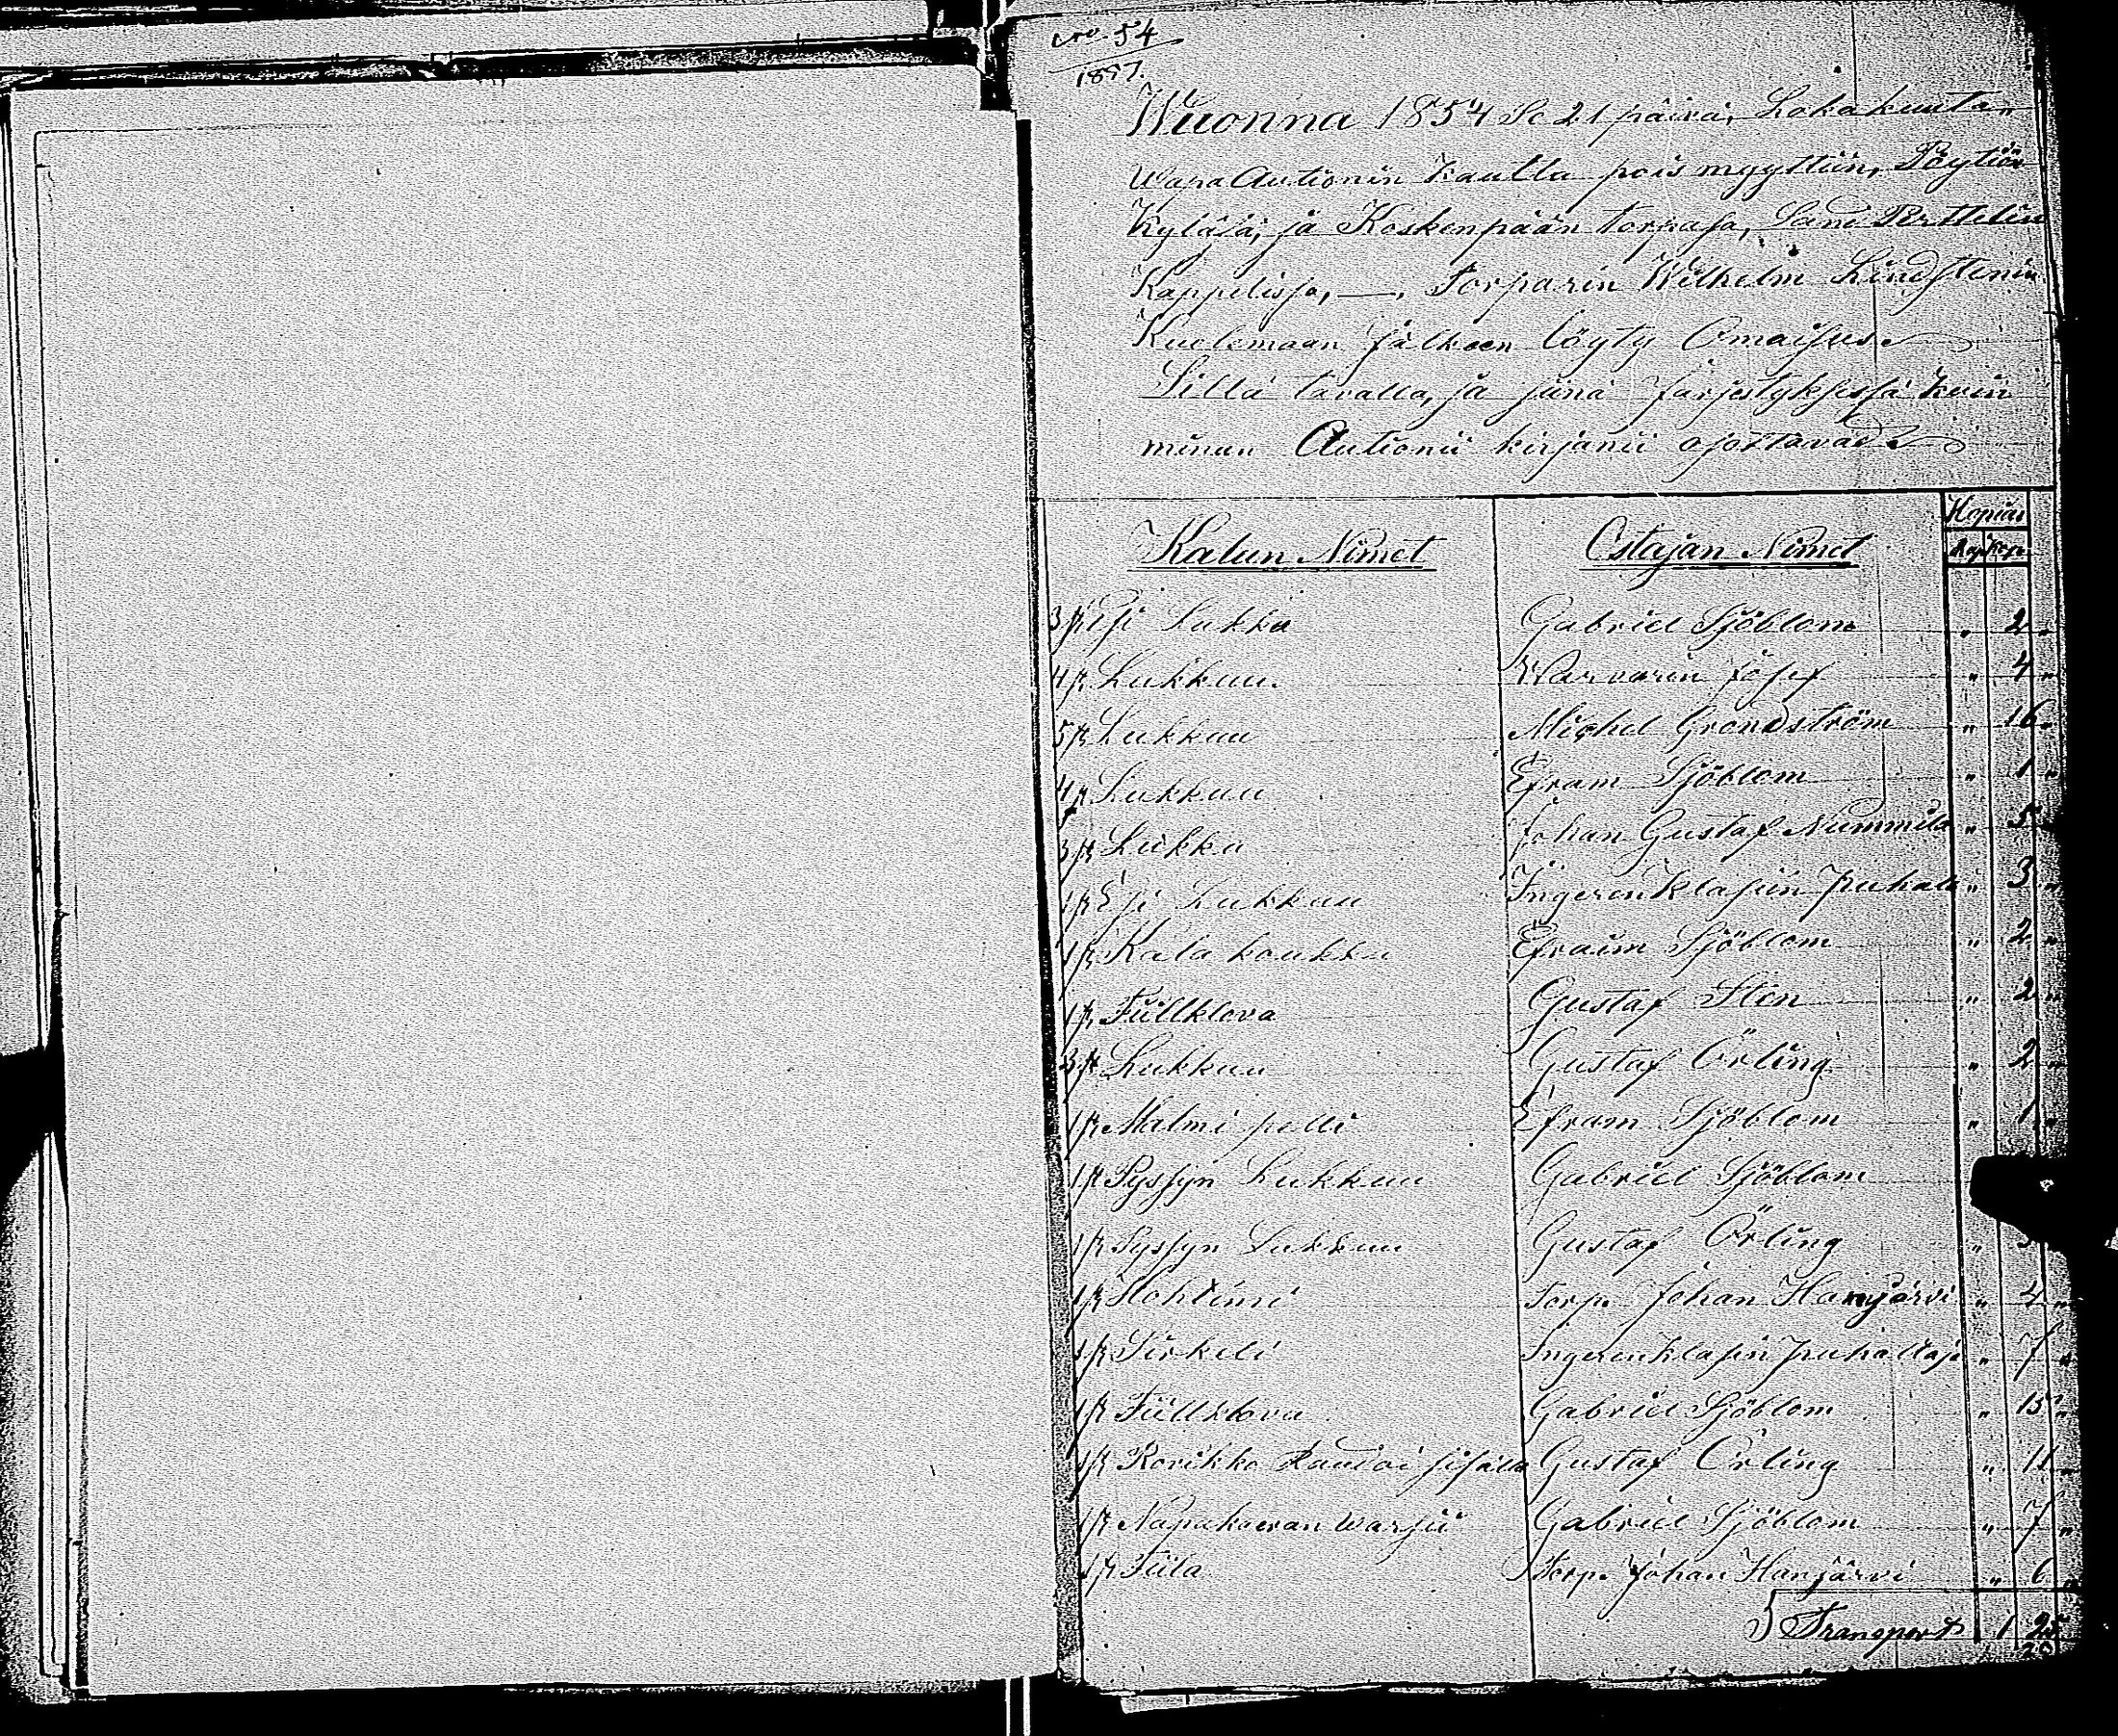 No 54
1857.
Wuonna 1854 Se 21 päivä, Lokakuuta
Wapa Autionin kautta pois myyttiin, Pöytiön
Kyläsä, ja Koskenpään torpasa, Sand Perttelin
Kappelissa, —, Torparin Wilhelm Lindstenin
Kuolemaan jälkeen löyty Omaisus
Sillä tavalla, ja siinä järjestyksessä kuin
minun Autionii kirjanii osottavad
Kalun Nimet Ostajan Nimet Hopias
Rup Kop
3 k Esi Lukka Gabriel Sjöblom " 2 "
4 k Lukkuu Warvarin Josef " 4 "
5 k Lukkuu Michel Grondström " 16 "
4 k Lukkuu Efram Sjöblom " 1 "
3 k Lukku Johan Gustaf Nummila " 5 "
1 k Esi Lukkuu Ingeren klasiin puhalt " 3 "
1 k Kala koukku Efraim Sjöblom " 2 "
1 k Fiillklova Gustaf Sten " 2 "
3 k Lukkuu Gustaf Örling " 2 "
1 k Malmi pelli Efram Sjöblom " 1 "
1 k Pyssyn Lukkuu Gabriel Sjöblom
1 k Pyssyn Lukkuu Gustaf Örling "
1 k Hohtimi Torp. Johan Hanjärvi " 4 "
1 k Sirkeli Ingeren klasin puhaltaja " 7 "
1 k Fiillklova Gabriel Sjöblom " 15 "
1 k Korikko Raudoi sisällä Gustaf Örling " 11 "
1 k Napakaeran warsii Gabriel Sjöblom " 7 "
1 k Fiila Torp. Johan Hanjärvi " 6 "
Transport 1